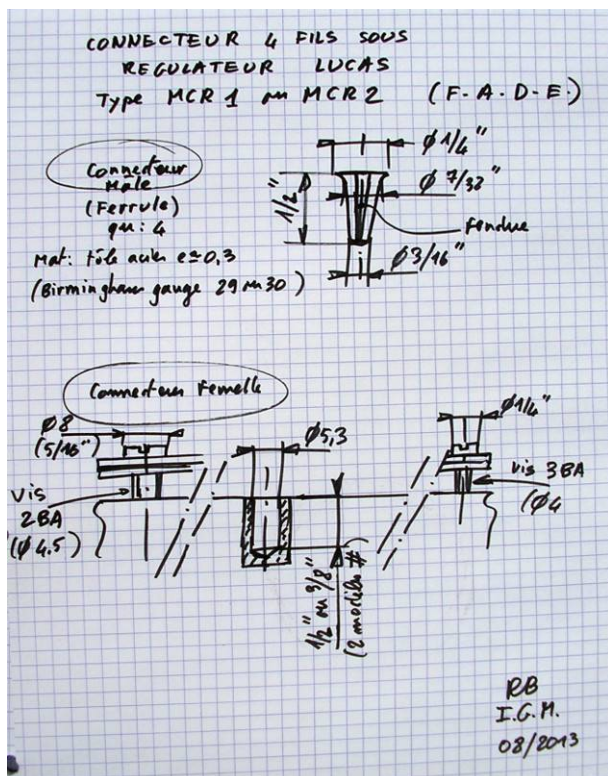 CONNECTEUR 4 FILS SOUS
REGULATEUR LUCAS
Type MCR1 ou MCR2 (F-A-D-E.)
Connecteur
Male
(Ferrule)
qu: 4
Mat: tôle acier e≃0,3
(Birmingham gauge 29 ou 30)
Ø1/4"
Ø 7/32"
1/2"
fendue
Ø3/16"
Connecteur Femelle
Ø8
(5/16")
vis
2BA
(Ø4.5)
Ø5,3
1/2" ou 3/8"
(2 modèles #)
Ø1/4"
vis 3BA
(Ø4
RB
I.G.M.
08/2013